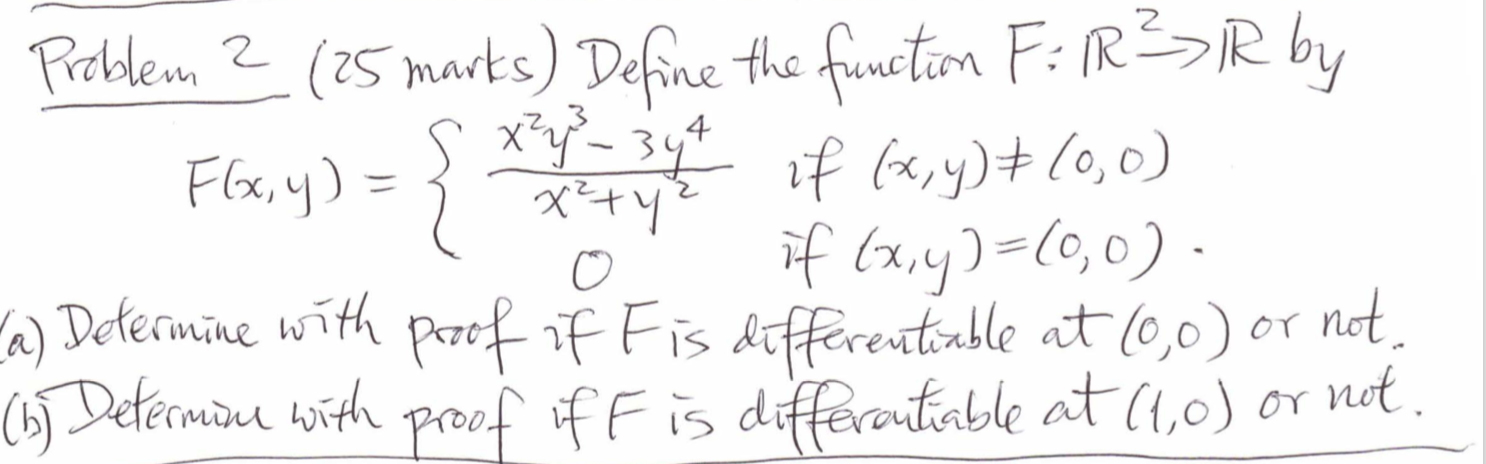 Problem 2 (25 marks) Define the function F: ℝ²→ℝ by
F(x,y) = { x²y³ - 3y⁴ / x²+y² if (x,y)≠(0,0)
0 if (x,y)=(0,0).
(a) Determine with proof if F is differentiable at (0,0) or not.
(b) Determine with proof if F is differentiable at (1,0) or not.